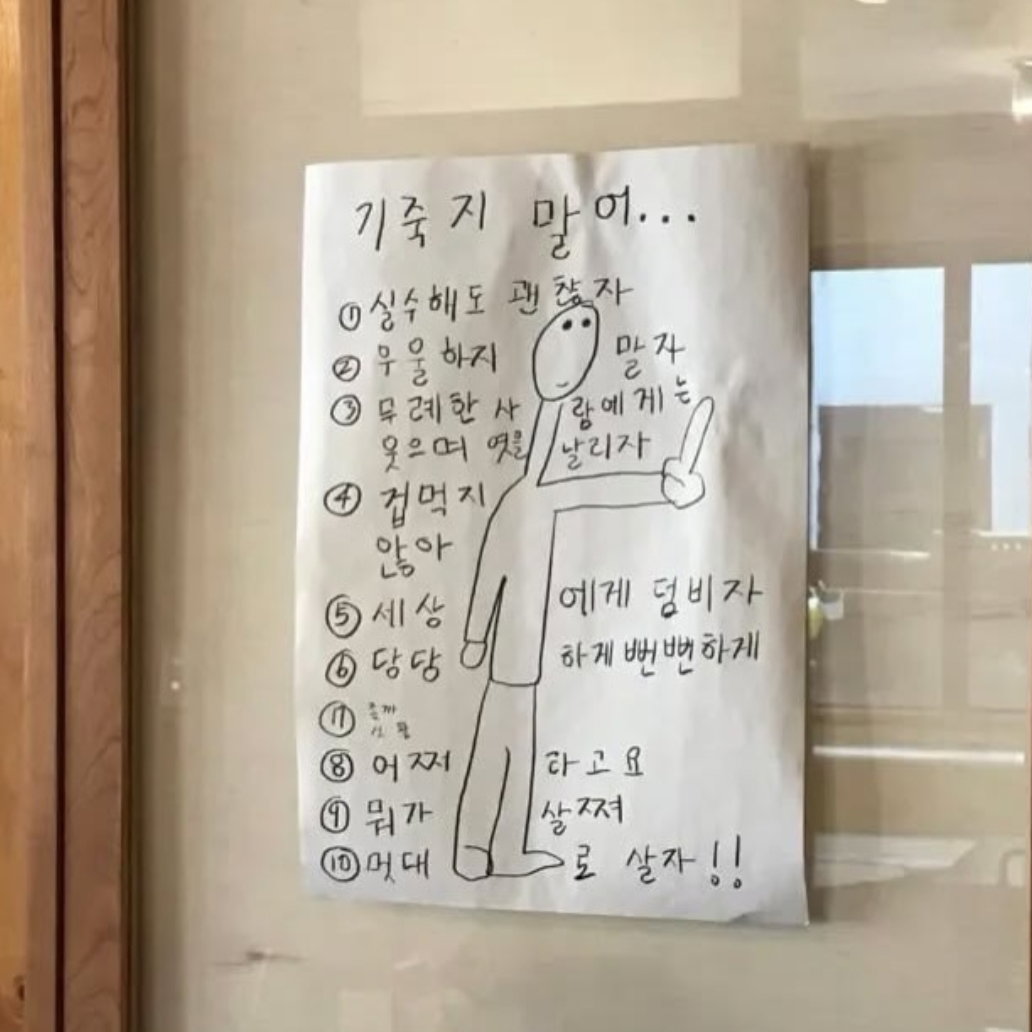 기죽지 말어...
① 실수해도 괜찮자
② 우울하지 말자
③ 무례한 사람에게는
웃으며 엿을 날리자
④ 겁먹지
않아
⑤ 세상에게 덤비자
⑥ 당당하게 뻔뻔하게
⑦
⑧ 어쩌타고요
⑨ 뭐가 살쪄
⑩ 멋대로 살자!!